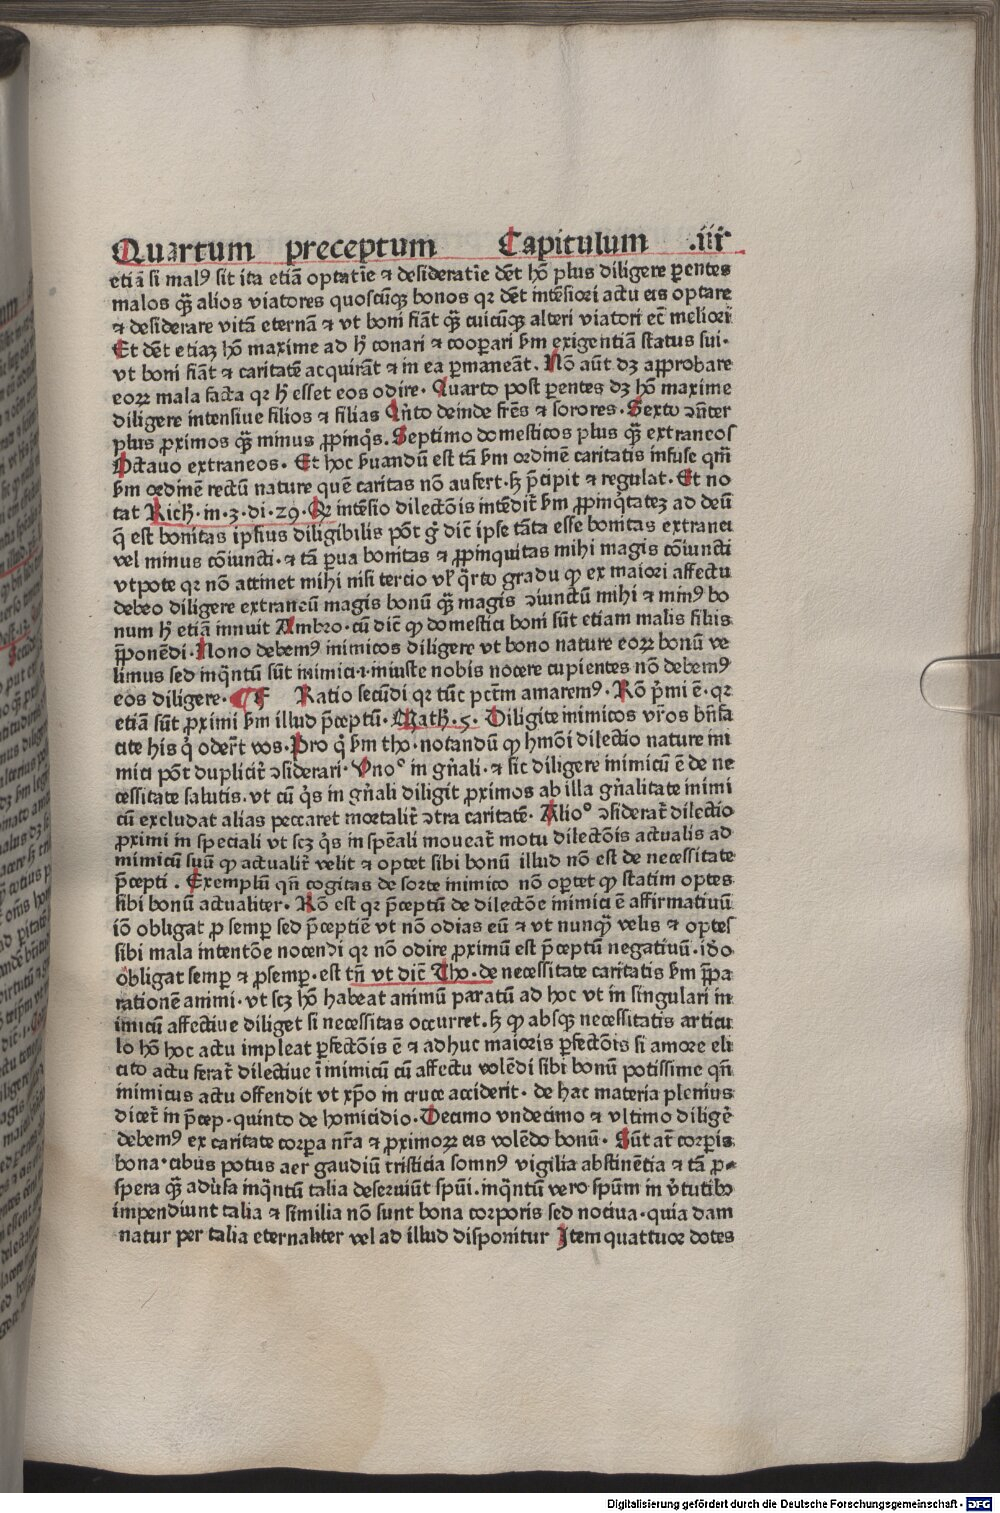 Quartum preceptum Capitulum .iii
etiā si malꝰ sit ita etiā optatīe ⁊ desideratīe dēt hō plus diligere ꝑentes
malos qꝫ̄ alios viatores quoscūqꝫ bonos qꝛ dēt intēsiori actu eis optare
⁊ desiderare vitā eternā ⁊ vt boni fiāt qꝫ̄ cuicūqꝫ alteri viatori etc̄ meliori
Et dēt etiaꝫ hō maxime ad hꝰ conari ⁊ cooꝑari ẜm exigentiā status sui·
vt boni fiāt ⁊ caritatē acquirāt ⁊ in ea ꝑmaneāt. Nō aūt dꝫ approbare
eoꝝ mala facta qꝛ hꝰ esset eos odire· Quarto post ꝑentes dꝫ hō maxime
diligere intensiue filios ⁊ filias Qͥnto deinde fr̄es ⁊ sorores· Sexto ↄñter
plus ꝓximos qꝫ̄ minus ꝓpinqͦs. Septimo domesticos plus qꝫ̄ extraneos
Octauo extraneos. Et hoc ẜuandū est tā ẜm ordinē caritatis infuse qm̄
ẜm ordinē rectū nature quē caritas nō aufert·ꜩ p̄cipit ⁊ regulat. Et no
tat Rich·in·3·di·29·Qꝛ intēsio dilectōis intēdit̄ ẜm ꝓpinqͥtateꝫ ad deū
q̄ est bonitas ipsius diligibilis pōt gͦ dic̄ ipse tāta esse bonitas extranei
vel minus cōiuncti·⁊ tā ꝑua bonitas ⁊ ꝓpinquitas mihi magis cōiuncti
vtpote qꝛ nō attinet mihi nisi tercio vl̓ qͣrto gradu ꝙ ex maiori affectu
debeo diligere extraneū magis bonū qꝫ̄ magis ↄiunctū mihi ⁊ minꝰ bo
num hꝰ etiā innuit Ambro·cū dic̄ ꝙ domestici boni sūt etiam malis filiis
p̄ponēdi·Nono debemꝰ inimicos diligere vt bono nature eoꝝ bonū ve
limus sed inqͣntū sūt inimici·i·iniuste nobis nocere cupientes nō debemꝰ
eos diligere· ¶ F Ratio secūdi qꝛ tūc pctm̄ amaremꝰ·Rō pͥmi ē·qꝛ
etiā sūt ꝓximi ẜm illud p̄ceptū·Math·5· Diligite inimicos vr̄os bn̄fa
cite his qͥ oder̄t vos·Pro qͦ ẜm tho·notandū ꝙ hmōi dilectio nature ini
mici pōt duplicit̄ ↄsiderari·Vnoͦ in gn̄ali·⁊ sic diligere inimicū ē de ne
cessitate salutis.vt cū qͥs in gn̄ali diligit ꝓximos ab illa gn̄alitate inimi
cū excludat alias peccaret mortalit̄ ↄtra caritatē· Alioͦ ↄsiderat̄ dilectio
ꝓximi in speciali vt scꝫ qͥs in spēali moueat̄ motu dilectōis actualis ad
inimicū suū ꝙ actualit̄ velit ⁊ optet sibi bonū illud nō est de necessitate
p̄cepti . Exemplū qn̄ cogitas de sorte inimico nō oꝑtet ꝙ statim optes
sibi bonū actualiter·Rō est qꝛ p̄ceptū de dilectōe inimici ē affirmatiuū
iō obligat ꝓ semꝑ sed p̄ceptiē vt nō odias eū ⁊ vt nunqꝫ̄ velis ⁊ optes
sibi mala intentōe nocendi qꝛ nō odire ꝓximū est p̄ceptū negatiuū·iđo
obligat semꝑ ⁊ ꝓsemꝑ·est tn̄ vt dic̄ Tho·de necessitate caritatis ẜm p̄pa
rationē animi·vt scꝫ hō habeat animū paratū ad hoc vt in singulari in
imicū affectiue diliget si necessitas occurret.ꜩ ꝙ absqꝫ necessitatis articu
lo hō hoc actu impleat ꝑfectōis ē ⁊ adhuc maioris ꝑfectōis si amore eli
cito actu ferat̄ dilectiue ī inimicū cū affectu volēdi sibi bonū potissime qn̄
inimicus actu offendit vt xp̄o in cruce acciderit· de hac materia plenius
dicet̄ in p̄cep·quinto de homicidio·Decimo vndecimo ⁊ vltimo diligē
debemꝰ ex caritate corꝑa nr̄a ⁊ ꝓximoꝝ eis volēdo bonū· Sūt at̄ corꝑis
bona·cibus potus aer gaudiū tristicia somnꝰ vigilia abstinētia ⁊ tā ꝓ-
spera qꝫ̄ adūsa inqͣntū talia deseruiūt spūi.inqͣntū vero spūm in v̓tutibꝰ
impendiunt talia ⁊ similia nō sunt bona corporis sed nociua·quia dam
natur per talia eternaliter vel ad illud disponitur Item quattuor dotes
Digitalisierung gefördert durch die Deutsche Forschungsgemeinschaft - DFG